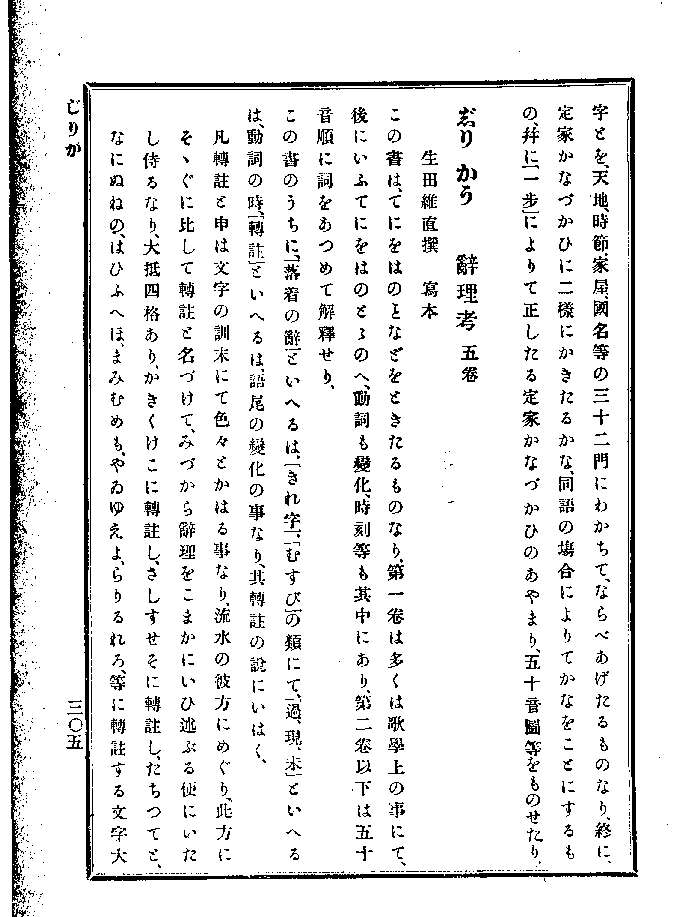 字とを、天地、時節、家屋、國名等の三十二門にわかちて、ならべあげたるものなり、終に、
定家かなづかひに二樣にかきたるかな、同語の塲合によりてかなをことにするも
の、幷に「一步」によりて正したる定家かなづかひのあやまり、五十音圖等をものせたり、
じりかう　辭理考　五卷
生田維直撰　寫本
この書は、てにをはのことなどをときたるものなり、第一卷は多くは歌學上の事にて、
後にいふてにをはのとゝのへ、動詞も變化、時刻等も其中にあり、第二卷以下は五十
音順に詞をあつめて解釋せり、
この書のうちに、「落着の辭」といへるは、「きれ字」、「むすび」の類にて、「過、現、未」といへる
は、動詞の時、「轉註」といへるは、語尾の變化の事なり、其轉註の說にいはく、
凡轉註と申は文字の訓末にて色々とかはる事なり、流水の彼方にめぐり、此方に
そゝぐに比して轉註と名づけて、みづから辭理をこまかにいひ述ぶる便にいた
し侍るなり、大抵四格あり、かきくけこに轉註し、さしすせそに轉註し、たちつてと、
なにぬねの、はひふへほ、まみむめも、やゐゆえよ、らりるれろ、等に轉註する文字大
じりか
三〇五